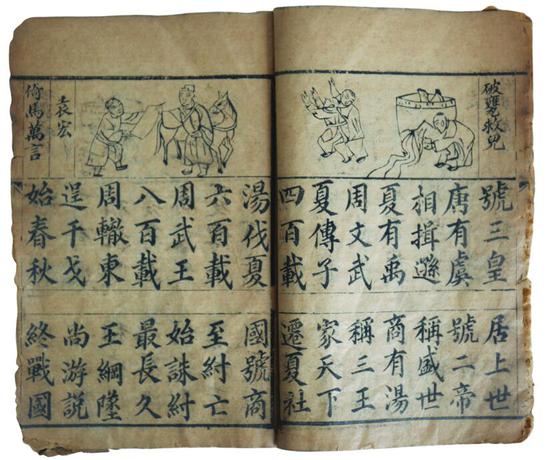 破甕救兒
號三皇 居上世
唐有虞 號二帝
相揖遜 稱盛世
夏有禹 商有湯
周文武 稱三王
夏傳子 家天下
四百載 遷夏社
袁宏
倚馬萬言
湯伐夏 國號商
六百載 至紂亡
周武王 始誅紂
八百載 最長久
周轍東 王綱墜
逞干戈 尚游說
始春秋 終戰國